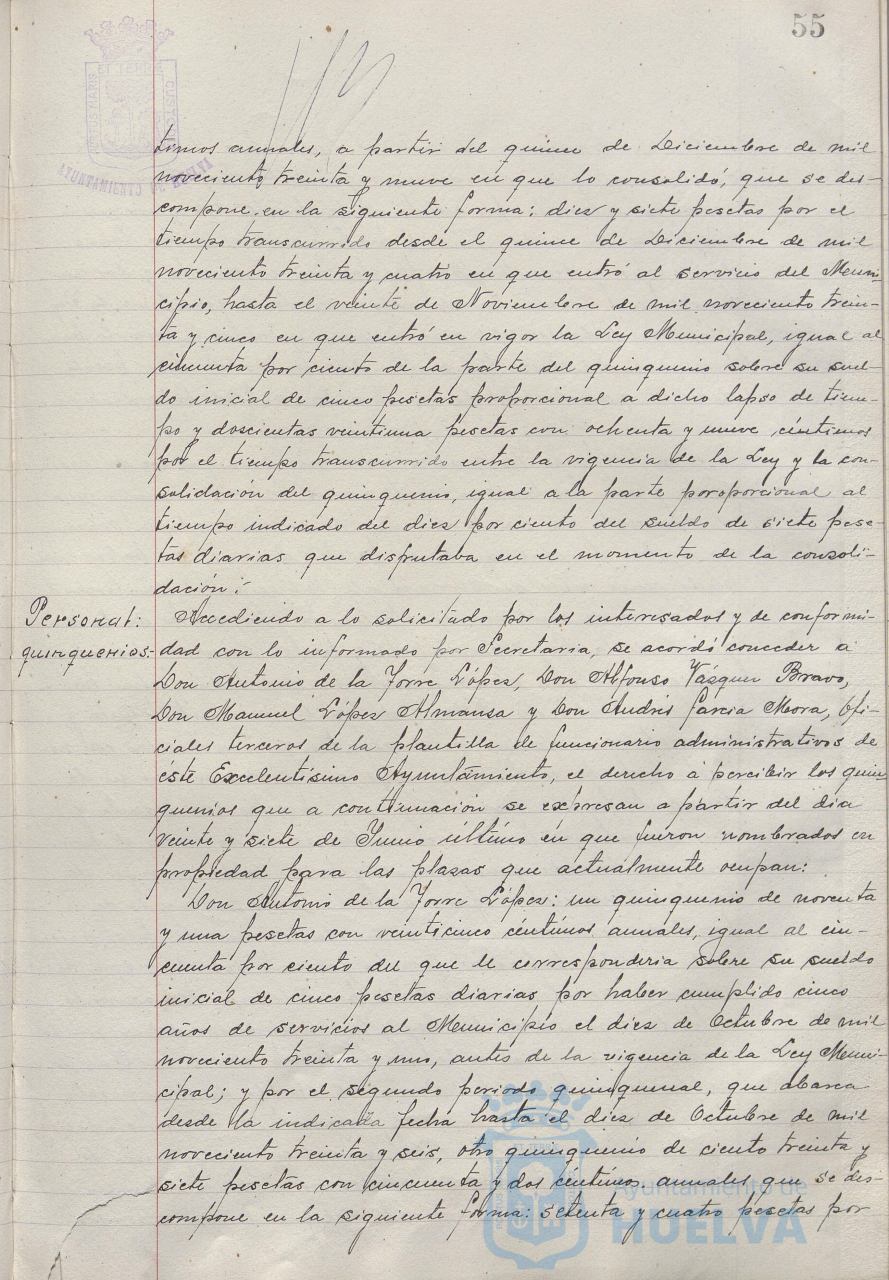 55
AYUNTAMIENTO DE HUELVA
timos anuales, a partir del quince de Diciembre de mil
noveciento treinta y nueve en que lo consolidó, que se des-
compone en la siguiente forma: diez y siete pesetas por el
tiempo transcurrido desde el quince de Diciembre de mil
noveciento treinta y cuatro en que entró al servicio del Muni-
cipio, hasta el veinte de Noviembre de mil noveciento trein-
ta y cinco en que entró en vigor la Ley Municipal, igual al
cincuenta por ciento de la parte del quinquenio sobre su suel-
do inicial de cinco pesetas proporcional a dicho lapso de tiem-
po y doscientas veintiuna pesetas con ochenta y nueve céntimos
por el tiempo transcurrido entre la vigencia de la Ley y la con-
solidación del quinquenio, igual a la parte poroporcional al
tiempo indicado del diez por ciento del sueldo de siete pese-
tas diarias que disfrutaba en el momento de la consoli-
dación.
Personal:
quinquenios.
Accediendo a lo solicitado por los interesados y de conformi-
dad con lo informado por Secretaria, se acordó conceder a
Don Antonio de la Torre López, Don Alfonso Vázquez Bravo,
Don Manuel López Almansa y Don Andrés Garcia Mora, Ofi-
ciales terceros de la plantilla de funcionario administrativos de
éste Excelentísimo Ayuntamiento, el derecho á percibir los quin-
quenios que a continuación se expresan a partir del dia
veinte y siete de Junio último en que fueron nombrados en
propiedad para las plazas que actualmente ocupan:
Don Antonio de la Torre López: un quinquenio de noventa
y una pesetas con veinticinco céntimos anuales, igual al cin-
cuenta por ciento del que le corresponderia sobre su sueldo
inicial de cinco pesetas diarias por haber cumplido cinco
años de servicios al Municipio el diez de Octubre de mil
noveciento treinta y uno, antes de la vigencia de la Ley Muni-
cipal; y por el segundo periodo quinquenal, que abarca
desde la indicada fecha hasta el diez de Octubre de mil
noveciento treinta y seis, otro quinquenio de ciento treinta y
siete pesetas con cincuenta y dos céntimos anuales que se des-
compone en la siguiente forma: setenta y cuatro pesetas por
Ayuntamiento de
HUELVA